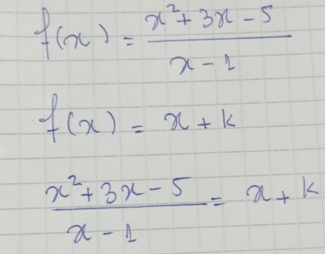 f(x) = (x² + 3x - 5)/(x - 1)
f(x) = x + k
(x² + 3x - 5)/(x - 1) = x + k